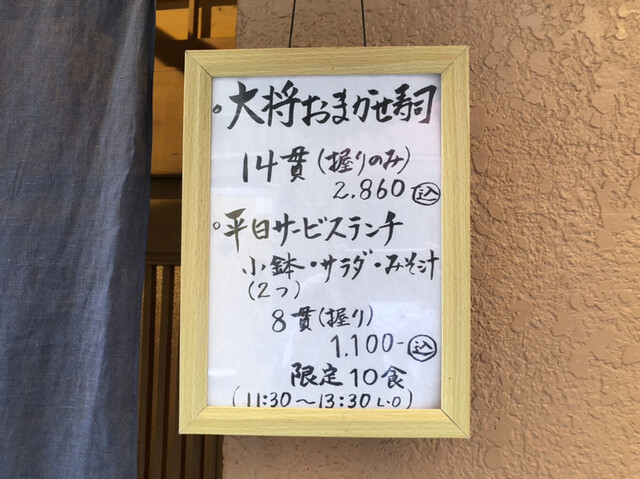 。大将おまかせ寿司
14貫(握りのみ)
2.860 込
。平日サービスランチ
小鉢・サラダ・みそ汁
(2つ)
8貫(握り)
1.100- 込
限定10食
(11:30〜13:30 L.O)